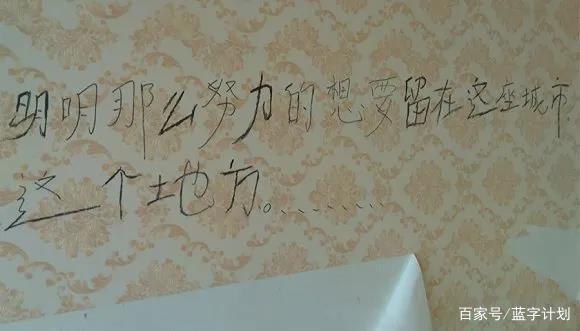 明明那么努力的想要留在这座城市,
这个地方。........
百家号/蓝字计划